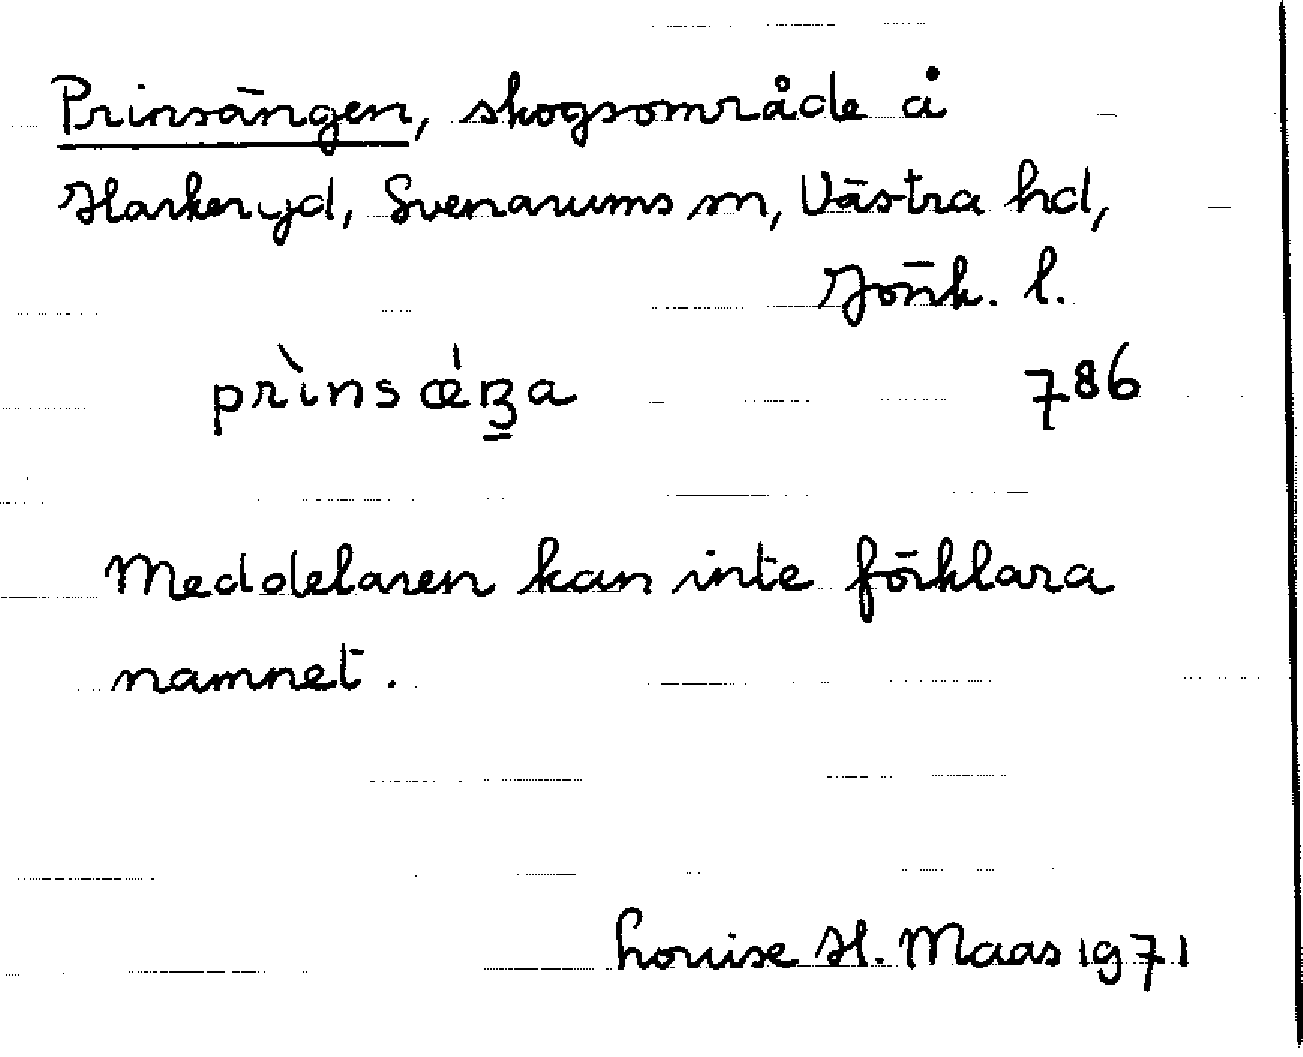 Prinsängen, skogsområde å
Harkeryd, Svenarums sn, Västra hd,
Jönk. l.
786
Meddelaren kan inte förklara
namnet.
Louise H. Maas 1971